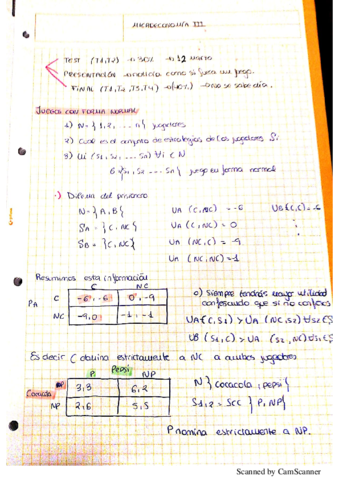 MICROECONOMÍA III
TEST (T1,T2) → 30% → 12 MARZO
PRESENTACIÓN → noticia como si fuera un juego.
FINAL (T1,T2,T3,T4) → (60%) → no se sabe día.
JUEGOS CON FORMA NORMAL
1) N = {1,2,... n} jugadores
2) Cual es el conjunto de estrategias de los jugadores Si
3) Ui (S1, S2 ... Sn) ∀i ∈ N
G {S1, S2 ... Sn} juego en forma normal
·) Dilema del prisionero
N = {A,B}
UA (C,NC) = -6
UB (C,C) = -6
SA = {C,NC}
UA (C,NC) = 0
SB = {C,NC}
UA (NC,C) = -9
UA (NC,NC) = -1
Resumimos esta información
C NC
PA C -6,-6 0,-9
NC -9,0 -1,-1
o) Siempre tendrás mayor utilidad
confesando que si no confesas
UA (C,S2) > UA (NC,S2) ∀S2
UB (S1,C) > UA (S1,NC) ∀S1
Es decir C domina estrictamente a NC a ambos jugadores
Pepsi
P NP
Cocacola P 3,3 6,2
NP 2,6 5,5
N {Cocacola, pepsi}
S1,2 = {P,NP}
P domina estrictamente a NP.
Scanned by CamScanner